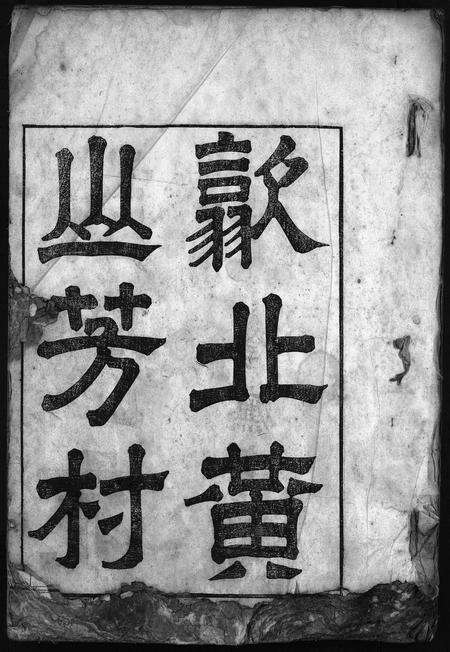 歙北黃
山芳村